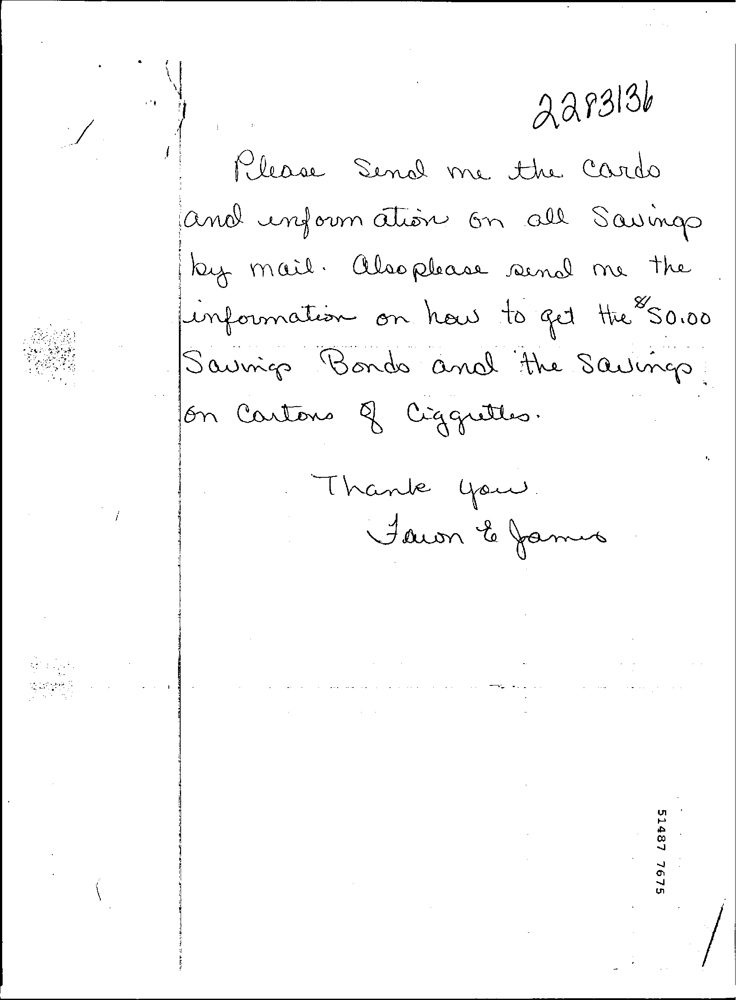 2283136
Please Send me the cards
and information on all Savings
by mail. Also please send me the
information on how to get the $50.00
Savings Bonds and the Savings
on Cartons of Ciggrettes.
Thank you.
Fawn E James
51487 7675